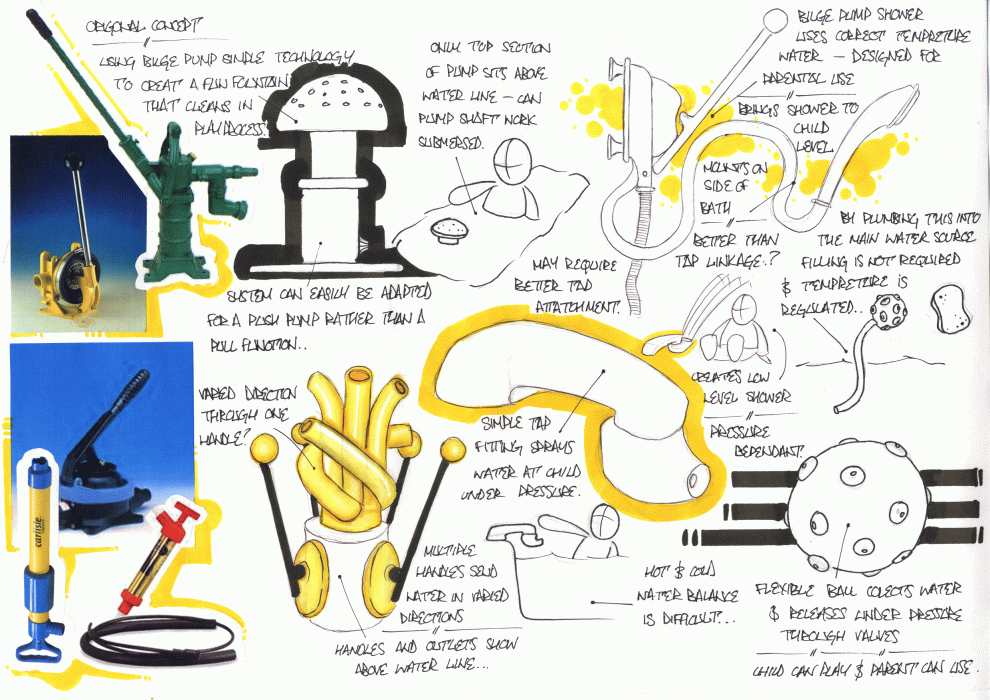 ORIGONAL CONCEPT
USING BILGE PUMP SIMPLE TECHNOLOGY
TO CREAT A FUN FOUNTAIN
THAT CLEANS IN
PLAY PROCESS.
ONLY TOP SECTION
OF PUMP SITS ABOVE
WATER LINE – CAN
PUMP SHAFT WORK
SUBMERSED.
BILGE PUMP SHOWER
USES CORRECT TEMPRETURE
WATER – DESIGNED FOR
PARENTAL USE
BRINGS SHOWER TO
CHILD
LEVEL.
MOUNTS ON
SIDE OF
BATH
BETTER THAN
TAP LINKAGE.?
BY PLUMBING THIS INTO
THE MAIN WATER SOURCE
FILLING IS NOT REQUIRED
& TEMPRETURE IS
REGULATED..
SYSTEM CAN EASILY BE ADAPTED
FOR A PUSH PUMP RATHER THAN A
PULL FUNCTION..
MAY REQUIRE
BETTER TAP
ATTATCHMENT.
CREATES LOW
LEVEL SHOWER
PRESSURE
DEPENDANT?
VARIED DIRECTION
THROUGH ONE
HANDLE?
SIMPLE TAP
FITTING SPRAYS
WATER AT CHILD
UNDER PRESSURE.
carlisle
MULTIPLE
HANDLES SEND
WATER IN VARIED
DIRECTIONS
HANDLES AND OUTLETS SHOW
ABOVE WATER LINE...
HOT & COLD
WATER BALANCE
IS DIFFICULT...
FLEXIBLE BALL COLECTS WATER
& RELEASES UNDER PRESSURE
THROUGH VALVES
CHILD CAN PLAY & PARENT CAN USE.